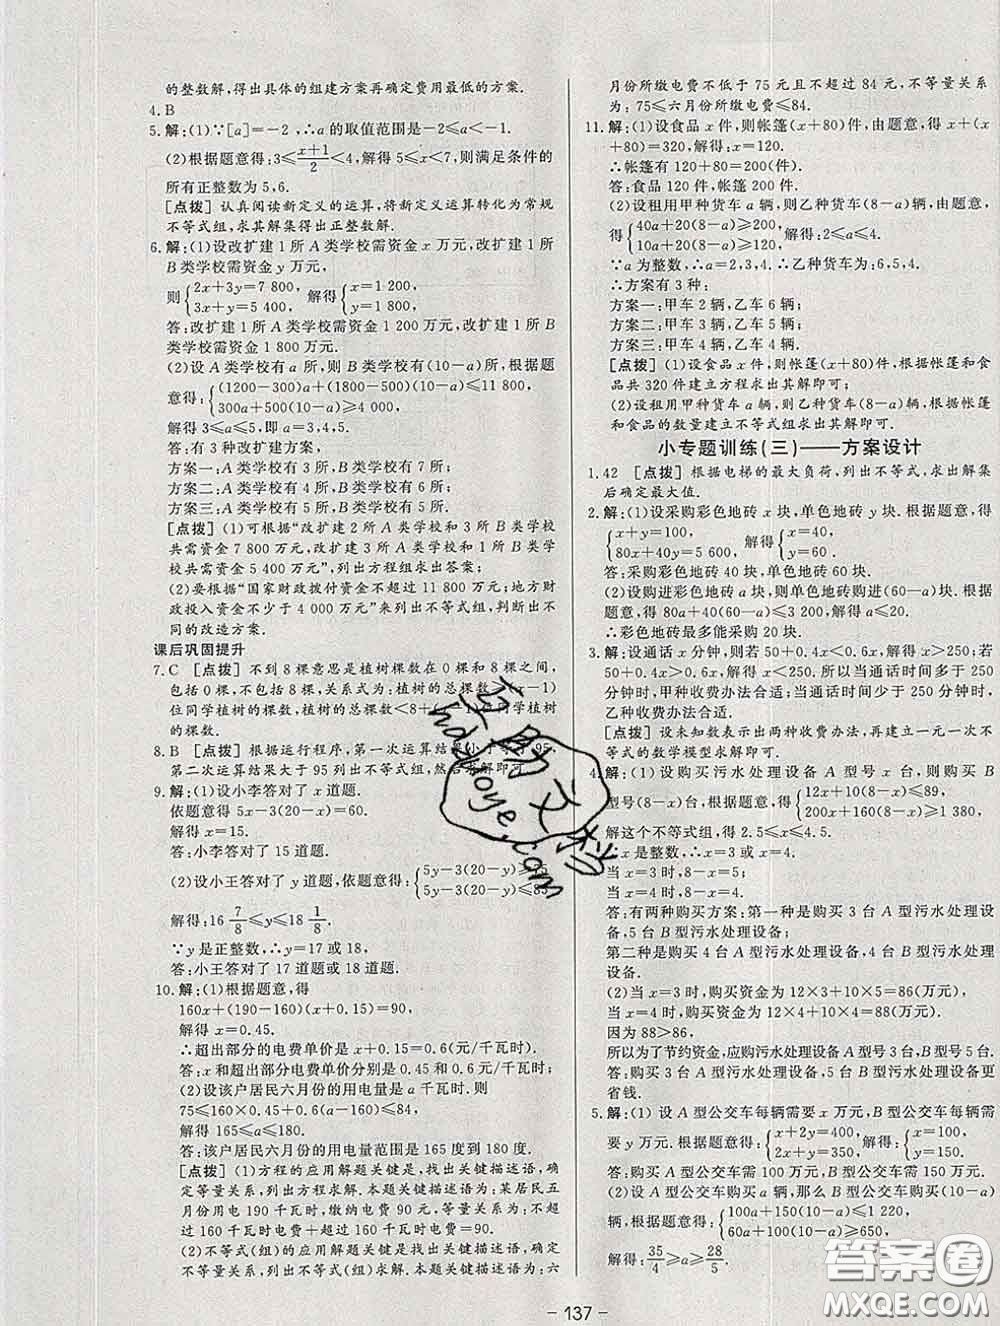 的整数解,得出具体的组建方案再确定费用最低的方案.
4.B
5.解:(1)∵[a]=-2,∴a的取值范围是-2≤a<-1.
(2)根据题意得:3≤x+1/2<4,解得5≤x<7,则满足条件的
所有正整数为5,6.
[点拨] 认真阅读新定义的运算,将新定义运算转化为常规
不等式组,求其解集得出正整数解.
6.解:(1)设改扩建1所A类学校需资金x万元,改扩建1所
B类学校需资金y万元,
则{2x+3y=7 800, 3x+y=5 400 解得{x=1 200, y=1 800.
答:改扩建1所A类学校需资金1 200万元,改扩建1所B
类学校需资金1 800万元.
(2)设A类学校有a所,则B类学校有(10-a)所,根据题
意得:{(1200-300)a+(1800-500)(10-a)≤11 800, 300a+500(10-a)≥4 000,
解得3≤a≤5,即a=3,4,5.
答:有3种改扩建方案.
方案一:A类学校有3所,B类学校有7所;
方案二:A类学校有4所,B类学校有6所;
方案三:A类学校有5所,B类学校有5所.
[点拨] (1)可根据“改扩建2所A类学校和3所B类学校
共需资金7 800万元,改扩建3所A类学校和1所B类学校
共需资金5 400万元”,列出方程组求出答案;
(2)要根据“国家财政拨付资金不超过11 800万元;地方财
政投入资金不少于4 000万元”来列出不等式组,判断出不
同的改造方案.
课后巩固提升
7.C [点拨] 不到8棵意思是植树棵数在0棵和8棵之间,
包括0棵,不包括8棵,关系式为:植树的总棵数≥(x-1)
位同学植树的棵数,植树的总棵数<8+(x-1)位同学植树
的棵数.
8.B [点拨] 根据运行程序,第一次运算结果小于等于95,
第二次运算结果大于95列出不等式组,然后求解即可.
9.解:(1)设小李答对了x道题.
依题意得5x-3(20-x)=60.
解得x=15.
答:小李答对了15道题.
(2)设小王答对了y道题,依题意得:{5y-3(20-y)≥75 5y-3(20-y)≤85,
解得:16 7/8≤y≤18 1/8.
∵y是正整数,∴y=17或18,
答:小王答对了17道题或18道题.
10.解:(1)根据题意,得
160x+(190-160)(x+0.15)=90,
解得x=0.45.
∴超出部分的电费单价是x+0.15=0.6(元/千瓦时).
答:x和超出部分电费单价分别是0.45和0.6元/千瓦时.
(2)设该户居民六月份的用电量是a千瓦时.则
75≤160×0.45+0.6(a-160)≤84,
解得165≤a≤180.
答:该户居民六月份的用电量范围是165度到180度.
[点拨] (1)方程的应用解题关键是,找出关键描述语,确
定等量关系,列出方程求解.本题关键描述语为:某居民五
月份用电190千瓦时,缴纳电费90元.等量关系为:不超
过160千瓦时电费+超过160千瓦时电费=90.
(2)不等式(组)的应用解题关键是找出关键描述语,确定
不等量关系,列出不等式(组)求解.本题关键描述语为:六
月份所缴电费不低于75元且不超过84元,不等量关系
为:75≤六月份所缴电费≤84.
11.解:(1)设食品x件,则帐篷(x+80)件,由题意,得x+(x
+80)=320,解得:x=120.
∴帐篷有120+80=200(件).
答:食品120件,帐篷200件.
(2)设租用甲种货车a辆,则乙种货车(8-a)辆,由题意,
得{40a+20(8-a)≥200, 10a+20(8-a)≥120, 解得:2≤a≤4.
∵a为整数,∴a=2,3,4.∴乙种货车为:6,5,4.
∴方案有3种:
方案一:甲车2辆,乙车6辆;
方案二:甲车3辆,乙车5辆;
方案三:甲车4辆,乙车4辆.
[点拨] (1)设食品x件,则帐篷(x+80)件,根据帐篷和食
品共320件建立方程求出其解即可;
(2)设租用甲种货车a辆,则乙种货车(8-a)辆,根据帐篷
和食品的数量建立不等式组求出其解即可.
小专题训练(三)——方案设计
1.42 [点拨] 根据电梯的最大负荷,列出不等式,求出解集
后确定最大值.
2.解:(1)设采购彩色地砖x块,单色地砖y块.根据题意,得
{x+y=100, 80x+40y=5 600, 解得{x=40, y=60.
答:采购彩色地砖40块,单色地砖60块.
(2)设购进彩色地砖a块,则单色地砖购进(2a-60)块.根据
题意,得80a+40(60-a)≤3 200.解得a≤20.
∴彩色地砖最多能采购20块.
3.解:设通话x分钟,则若50+0.4x<0.6x.解得x>250.若
50+0.4x>0.6x.解得x<250.所以当通话时间多于250
分钟时,甲种收费办法合适;当通话时间少于250分钟时,
乙种收费办法合适.
[点拨] 设未知数表示出两种收费办法,再建立一元一次不
等式的数学模型求解即可.
4.解:(1)设购买污水处理设备A型号x台,则购买B
型号(8-x)台,根据题意,得{12x+10(8-x)≤89, 200x+160(8-x)≥1 380.
解这个不等式组,得2.5≤x≤4.5.
∵x是整数,∴x=3或x=4.
当x=3时,8-x=5;
当x=4时,8-x=4.
答:有两种购买方案:第一种是购买3台A型污水处理设
备,5台B型污水处理设备;
第二种是购买4台A型污水处理设备,4台B型污水处理
设备.
(2)当x=3时,购买资金为12×3+10×5=86(万元),
当x=4时,购买资金为12×4+10×4=88(万元).
因为88>86,
所以为了节约资金,应购污水处理设备A型号3台,B型号5台.
答:购买3台A型污水处理设备,5台B型污水处理设备更
省钱.
5.解:(1)设A型公交车每辆需要x万元,B型公交车每辆需
要y万元.由题意,得{x+2y=400, 2x+y=350, 解得:{x=100, y=150.
答:购买A型公交车需100万元,B型公交车需150万元.
(2)设A型公交车购买a辆,那么B型公交车购买(10-a)
辆,由题意,得{100a+150(10-a)≤1 220, 60a+100(10-a)≥650,
解得:35/4≥a≥28/5.
- 137 -
答案圈
MXQE.COM